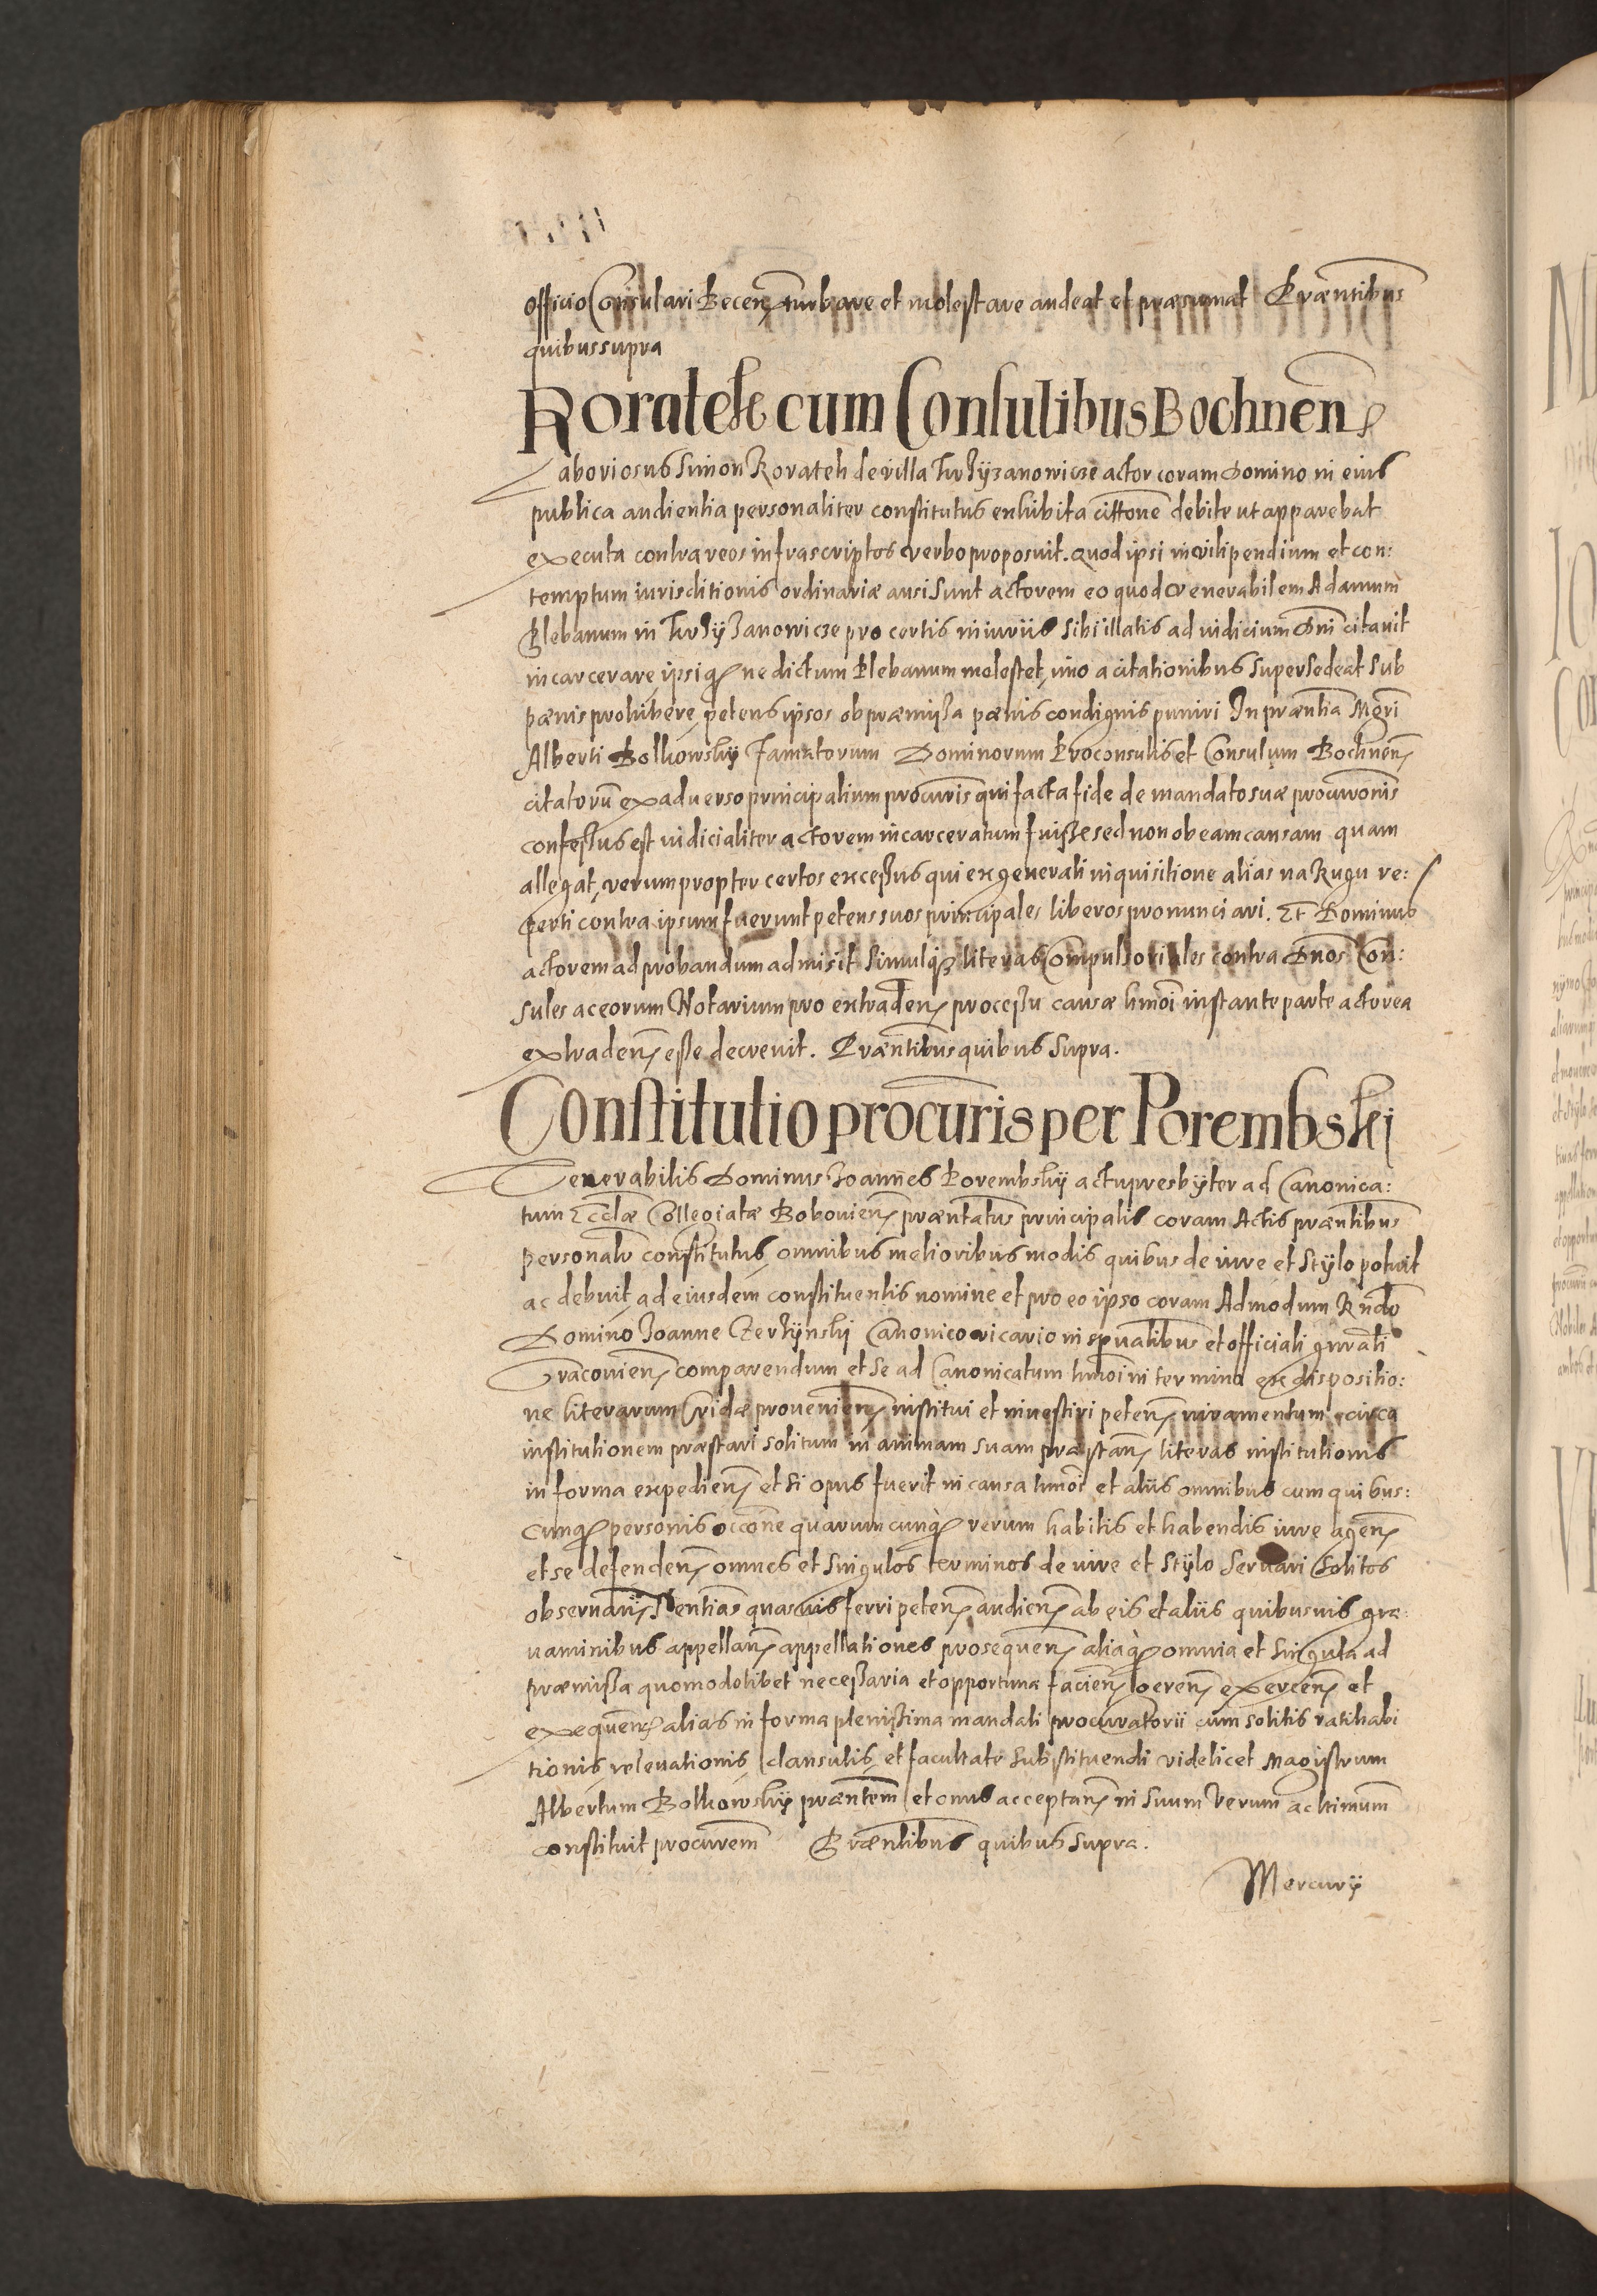 officio Consulari Becen̄ turbare et molestare audeat et præsumat Præntibus
quibus supra
Roratek cum Consulibus Bochnen̄
Laboriosus Simon Roratek de villa Trzyzanowicze actor coram Domino in eius
publica audientia personaliter constitutus exhibita cittone debite ut apparebat
executa contra reos infrascriptos verbo proposuit. Quod ipsi in vilipendium et con:
temptum iurisditionis ordinariæ ausi sunt actorem eo quod venerabilem Adamum
Plebanum in Trzyzanowicze pro certis iniuriis sibi illatis ad iudicium Dni citauit
incarcerare, ipsiq̃ ne dictum Plebanum molestet, imo a citationibus supersedeat sub
pænis prohibere, petens ipsos ob præmissa pænis condignis puniri In præntia Mgri
Alberti Bolkowsky Famatorum Dominorum Proconsulis et Consulum Bochnen̄
citatorũ ex aduerso principalium procuris qui facta fide de mandato suæ procuronis
confessus est iudicialiter actorem incarceratum fuisse sed non ob eam causam quam
allegat, verum propter certos excessus qui ex generali inquisitione alias na Rugu re:
perti contra ipsum fuerunt petens suos principales liberos pronunciari. Et Dominus
actorem ad probandum admisit simulq̃ literas Compulsoriales contra Dnos Con:
sules ac eorum Notarium pro extraden̄ processu causæ hmoi instante parte actorea
extraden̄ esse decreuit. Præntibus quibus supra.
Constitutio procuris per Porembskj
Venerabilis Dominus Joannes Porembsky actu presbyter ad Canonica:
tum Ecclæ Collegiatæ Bobouien̄ præntatus principalis coram Actis præntibus
personalr constitutus, omnibus melioribus modis quibus de iure et stylo potuit
ac debuit, ad eiusdem constituentis nomine et pro eo ipso coram Admodum Rndo
Domino Joanne Cerzynskj Canonico vicario in spualibus et officiali gnrali
Cracouien̄ comparendum et se ad Canonicatum hmoi in termino ex dispositio:
ne literarum Cridæ prouenien̄ institui et inuestiri peten̄, iuramentum circa
institutionem præstari solitum in animam suam præstan̄, literas institutionis
in forma expedien̄ et si opus fuerit in causa hmoi et aliis omnibus cum quibus:
cunq̃ personis occone quarumcunq̃ rerum habitis et habendis iure agen̄
et se defenden̄ omnes et singulos terminos de iure et stylo seruari solitos
obseruan̄, Sentias quasuis ferri peten̄ audien̄ ab eis et aliis quibusuis gra:
uaminibus appellan̄ appellationes prosequen̄ aliaq̃ omnia et singula ad
præmissa quomodolibet necessaria et opportuna facien̄ geren̄ exercen̄ et
exequen̄ alias in forma plenissima mandati procuratorii cum solitis ratihabi
tionis, releuationis, clausulis, et facultate substituendi videlicet Magistrum
Albertum Bolkowsky præntem et onus acceptan̄ in suum verum ac ltimum
constituit procurem Præntibus quibus supra.
Mercurij